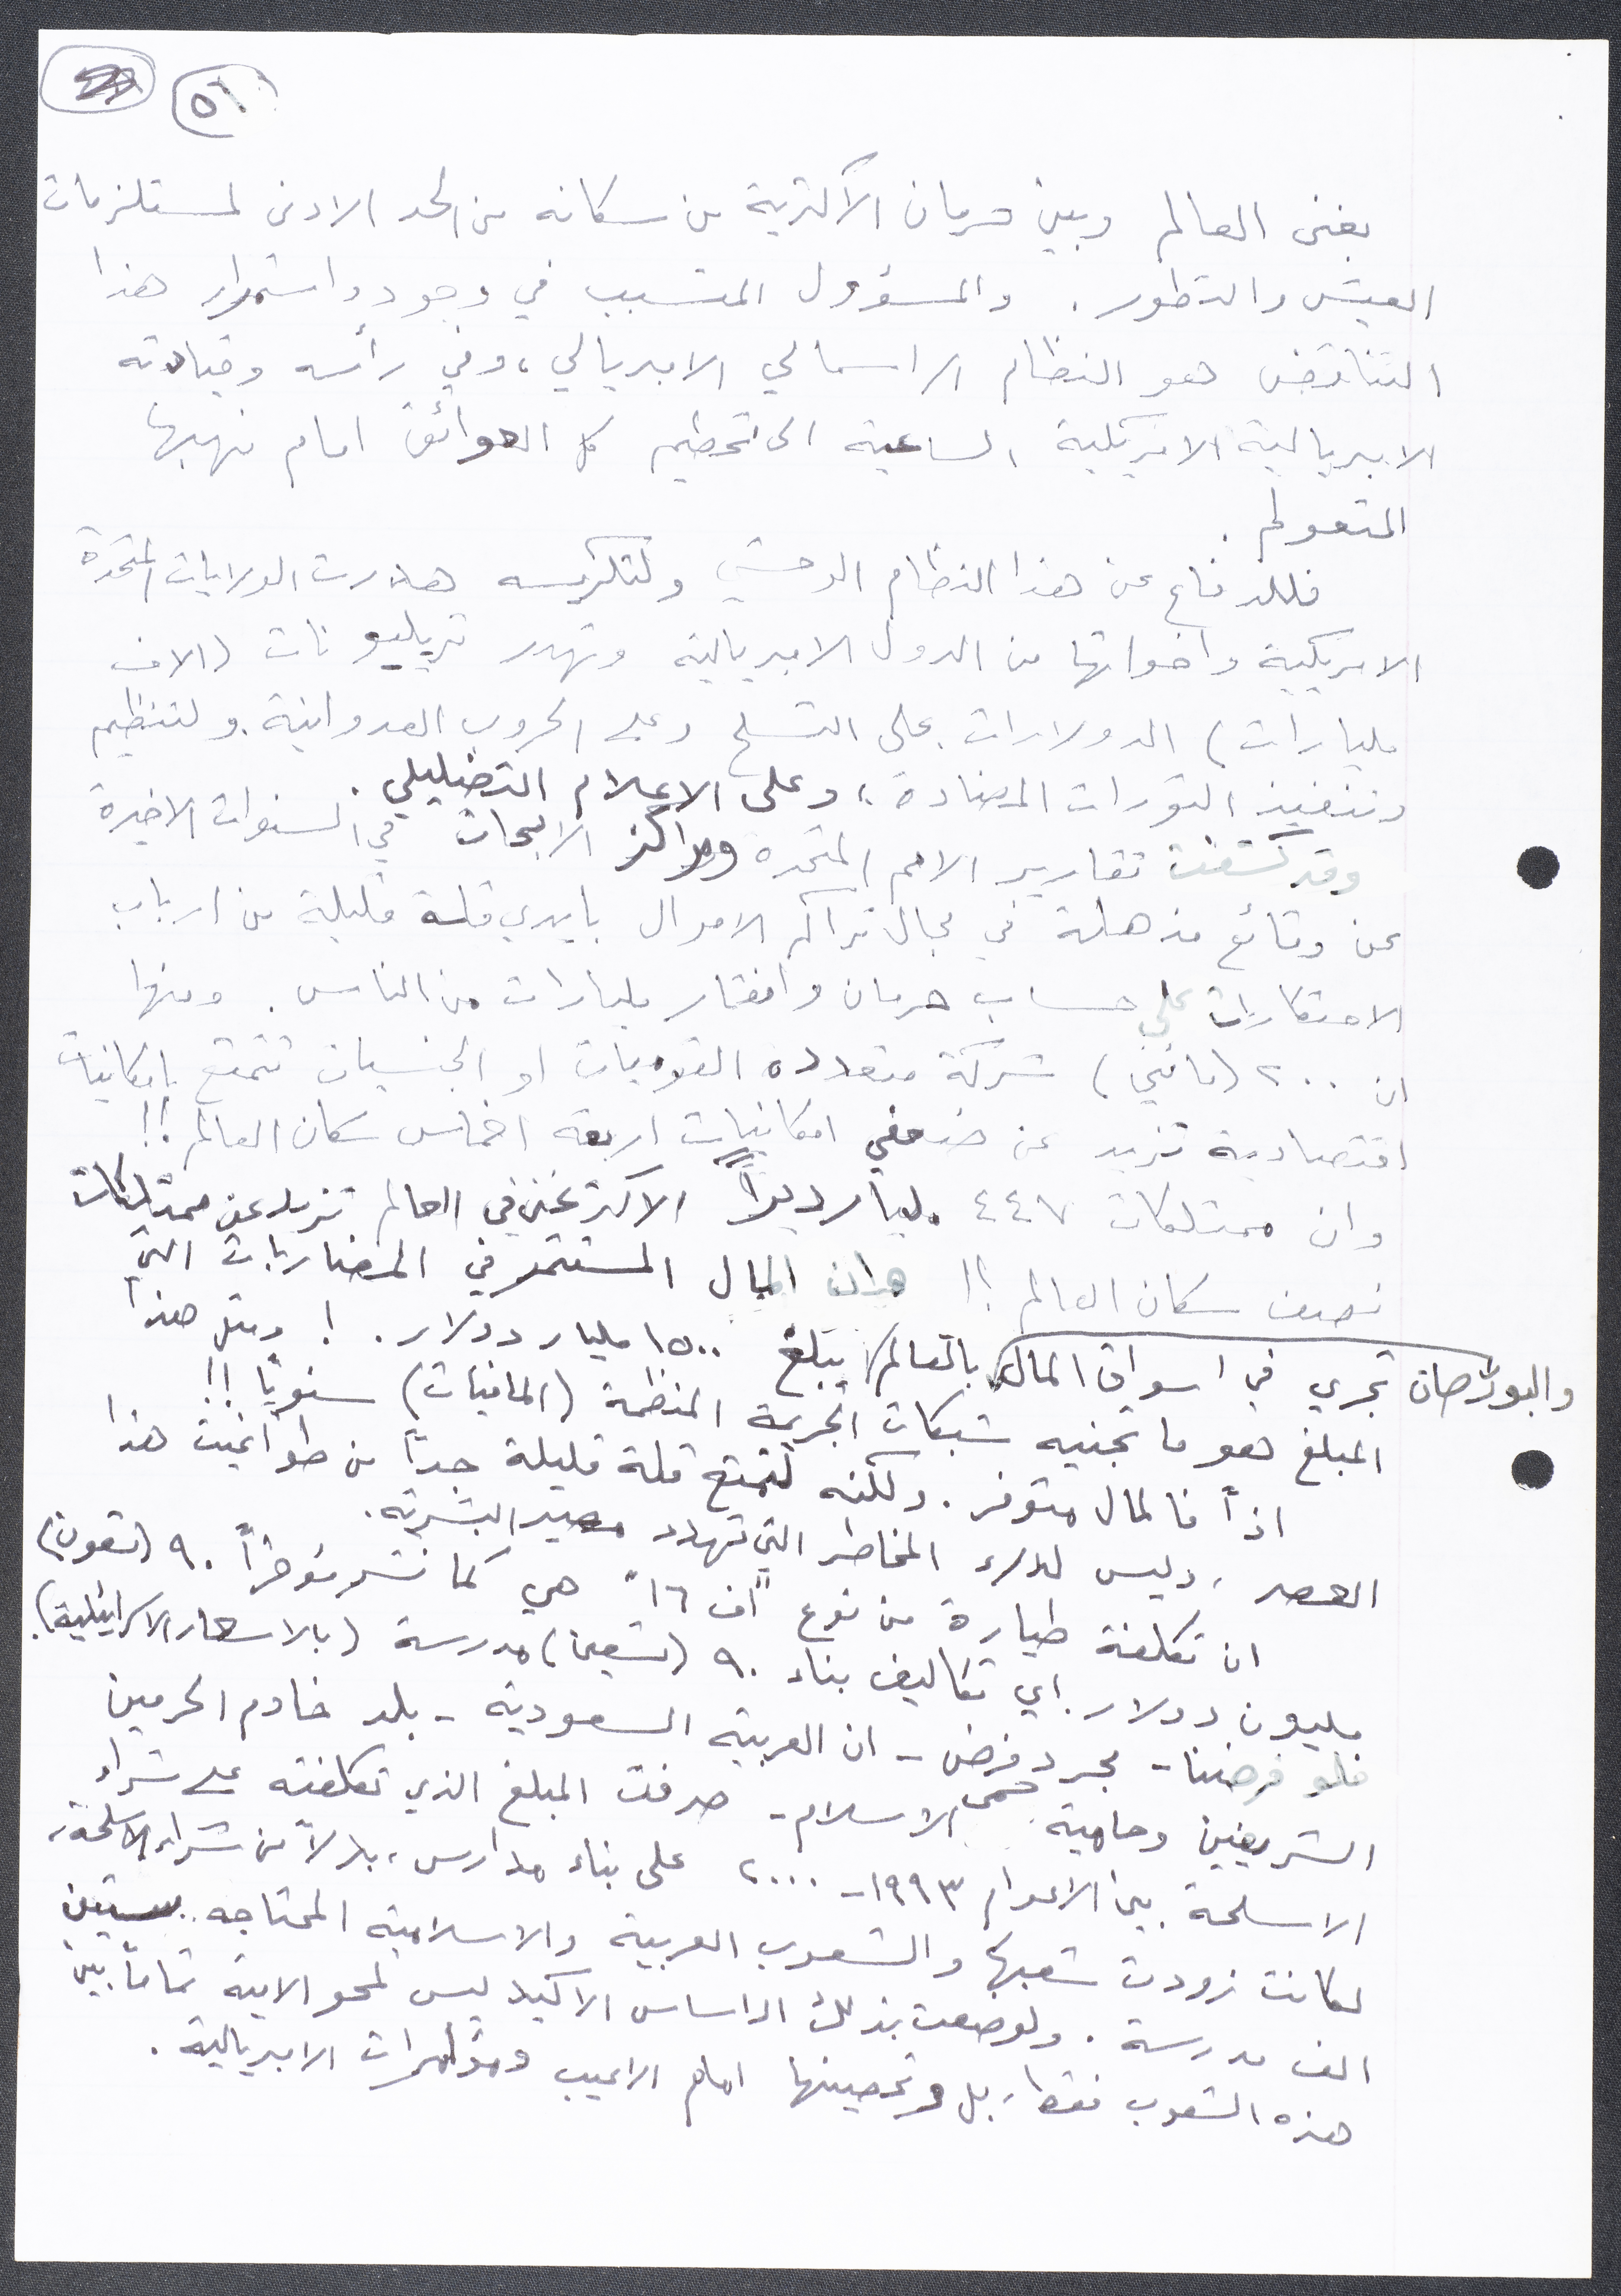 ٥١
بغنى العالم وبين حرمان الاكثرية من سكانه من الحد الادنى لمستلزمات
العيش والتطور. والمسؤول المتسبب في وجود واستمرار هذا
التناقض هو النظام الراسمالي الامبريالي، وفي رأسه وقيادته
الامبريالية الامريكية الساعية الى تحطيم كل العوائق امام نهبها
المتعولم.
فللدفاع عن هذا النظام الوحشي ولتكريسه هدرت الولايات المتحدة
الامريكية واخواتها من الدول الامبريالية وتهدر تريليونات (الاف
مليارات) الدولارات على التسلح وعلى الحروب العدوانية. ولتنظيم
وتنفيذ الثورات المضادة، وعلى الاعلام التضليلي.
وقد كشفت تقارير الامم المتحدة ومراكز الابحاث في السنوات الاخيرة
عن وقائع مذهلة في مجال تراكم الاموال بايدي قلة قليلة من ارباب
الاحتكارات على حساب حرمان وافقار مليارات من الناس. ومنها
ان ٢٠٠ (مائتي) شركة متعددة القوميات او الجنسيات تتمتع بامكانيات
اقتصادية تزيد عن ضعفي امكانيات اربعة اخماس سكان العالم!!
وان ممتلكات ٤٤٧ مليارديراً الاكثر غنى في العالم تزيد عن ممتلكات
نصف سكان العالم!! وان المال المستثمر في المضاربات التي
والبورصات تجري في اسواق المال بالعالم يبلغ ١٥٠٠ مليار دولار.! ومثل هذا
المبلغ هو ما تجنيه شبكات الجريمة المنظمة (المافيات) سنويًا!!
اذاً فالمال متوفر. ولكنه لتمتع قلة قليلة جداً من طواغيت هذا
العصر، وليس لدرء المخاطر التي تهدد مصير البشرية.
ان تكلفة طيارة من نوع "اف ١٦" هي كما نشر مؤخراً ٩٠ (تسعون)
مليون دولار. اي تكاليف بناء ٩٠ (تسعين) مدرسة (بالاسعار الاسرائيلية).
فلو فرضنا - مجرد فرض - ان العربية السعودية - بلد خادم الحرمين
الشريفين وحامية حمى الاسلام - صرفت المبلغ الذي تكلفته على شراء
الاسلحة بين الاعوام ١٩٩٣ - ٢٠٠٠ على بناء مدارس، بدلاً من شراء الاسلحة،
لكانت زودت شعبها والشعوب العربية والاسلامية المحتاجه بستين
الف مدرسة. ولوضعت بذلك الاساس الاكيد ليس لمحو الامية تماماً بين
هذه الشعوب فقط، بل وتحصينها امام الاعيب ومؤامرات الامبريالية.